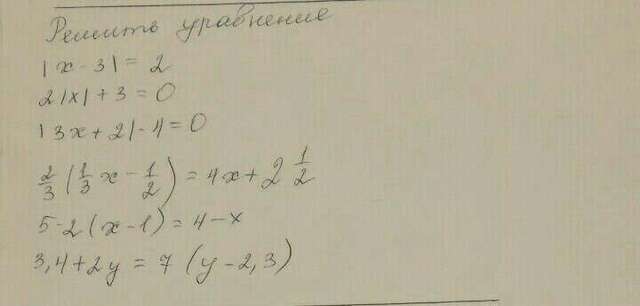 Решить уравнение
|x - 3| = 2
2|x| + 3 = 0
|3x + 2| - 4 = 0
2/3 (1/3 x - 1/2) = 4x + 2 1/2
5 - 2 (x - 1) = 4 - x
3,4 + 2y = 7 (y - 2,3)